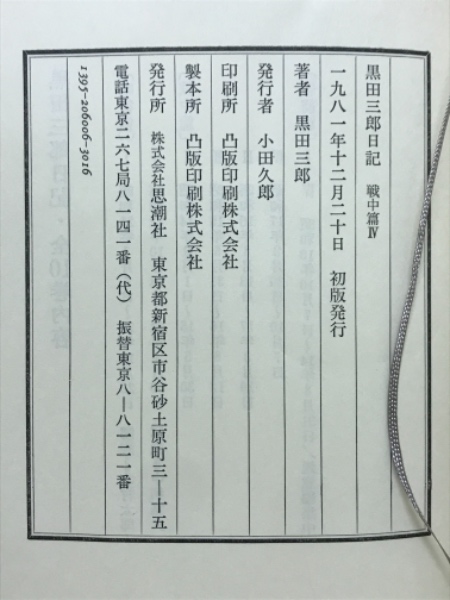 黒田三郎日記　戦中篇Ⅳ
一九八一年十二月二十日　初版発行
著者　黒田三郎
発行者　小田久郎
印刷所　凸版印刷株式会社
製本所　凸版印刷株式会社
発行所　株式会社思潮社　東京都新宿区市谷砂土原町三―十五
電話東京二六七局八一四一番（代）　振替東京八―八一二一番
1395-206006-3016